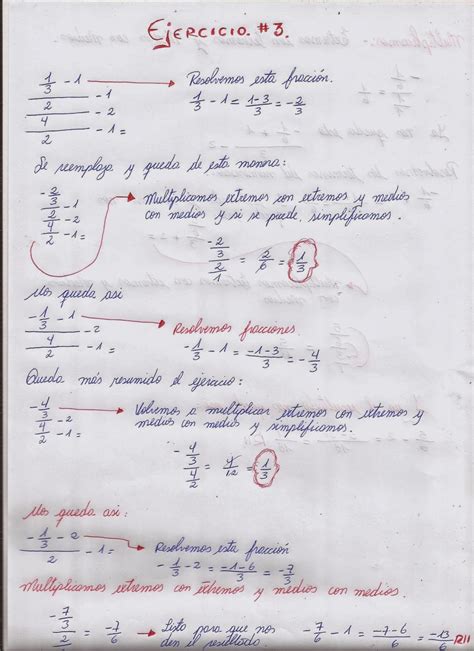 EJERCICIO. #3.
1/3 - 1 → Resolvemos esta fracción.
- 1
2
- 2
4
- 1 =
2
1/3 - 1 = 1-3/3 = -2/3
Se reemplaza y queda de esta manera:
-2/3 → Multiplicamos extremos con extremos y medios
2/1 - 1 con medios y si se puede, simplificamos.
- 2
4/2 - 1 =
-2/3 / 2/1 = 2/6 = 1/3
Nos queda asi
-1/3 - 1 → Resolvemos fracciones
- 2
4/2 - 1 =
-1/3 - 1 = -1-3/3 = -4/3
Queda más resumido el ejercicio:
-4/3 - 2 → Volvemos a multiplicar extremos con extremos y
4/2 - 1 = medios con medios y simplificamos.
-4/3 / 4/2 = 4/12 = 1/3
Nos queda asi:
-1/3 - 2 → Resolvemos esta fracción
2 - 1 =
-1/3 - 2 = -1-6/3 = -7/3
Multiplicamos extremos con extremos y medios con medios.
-7/3 / 2/1 = -7/6 → Listo para que nos den el resultado. -7/6 - 1 = -7-6/6 = -13/6 R//